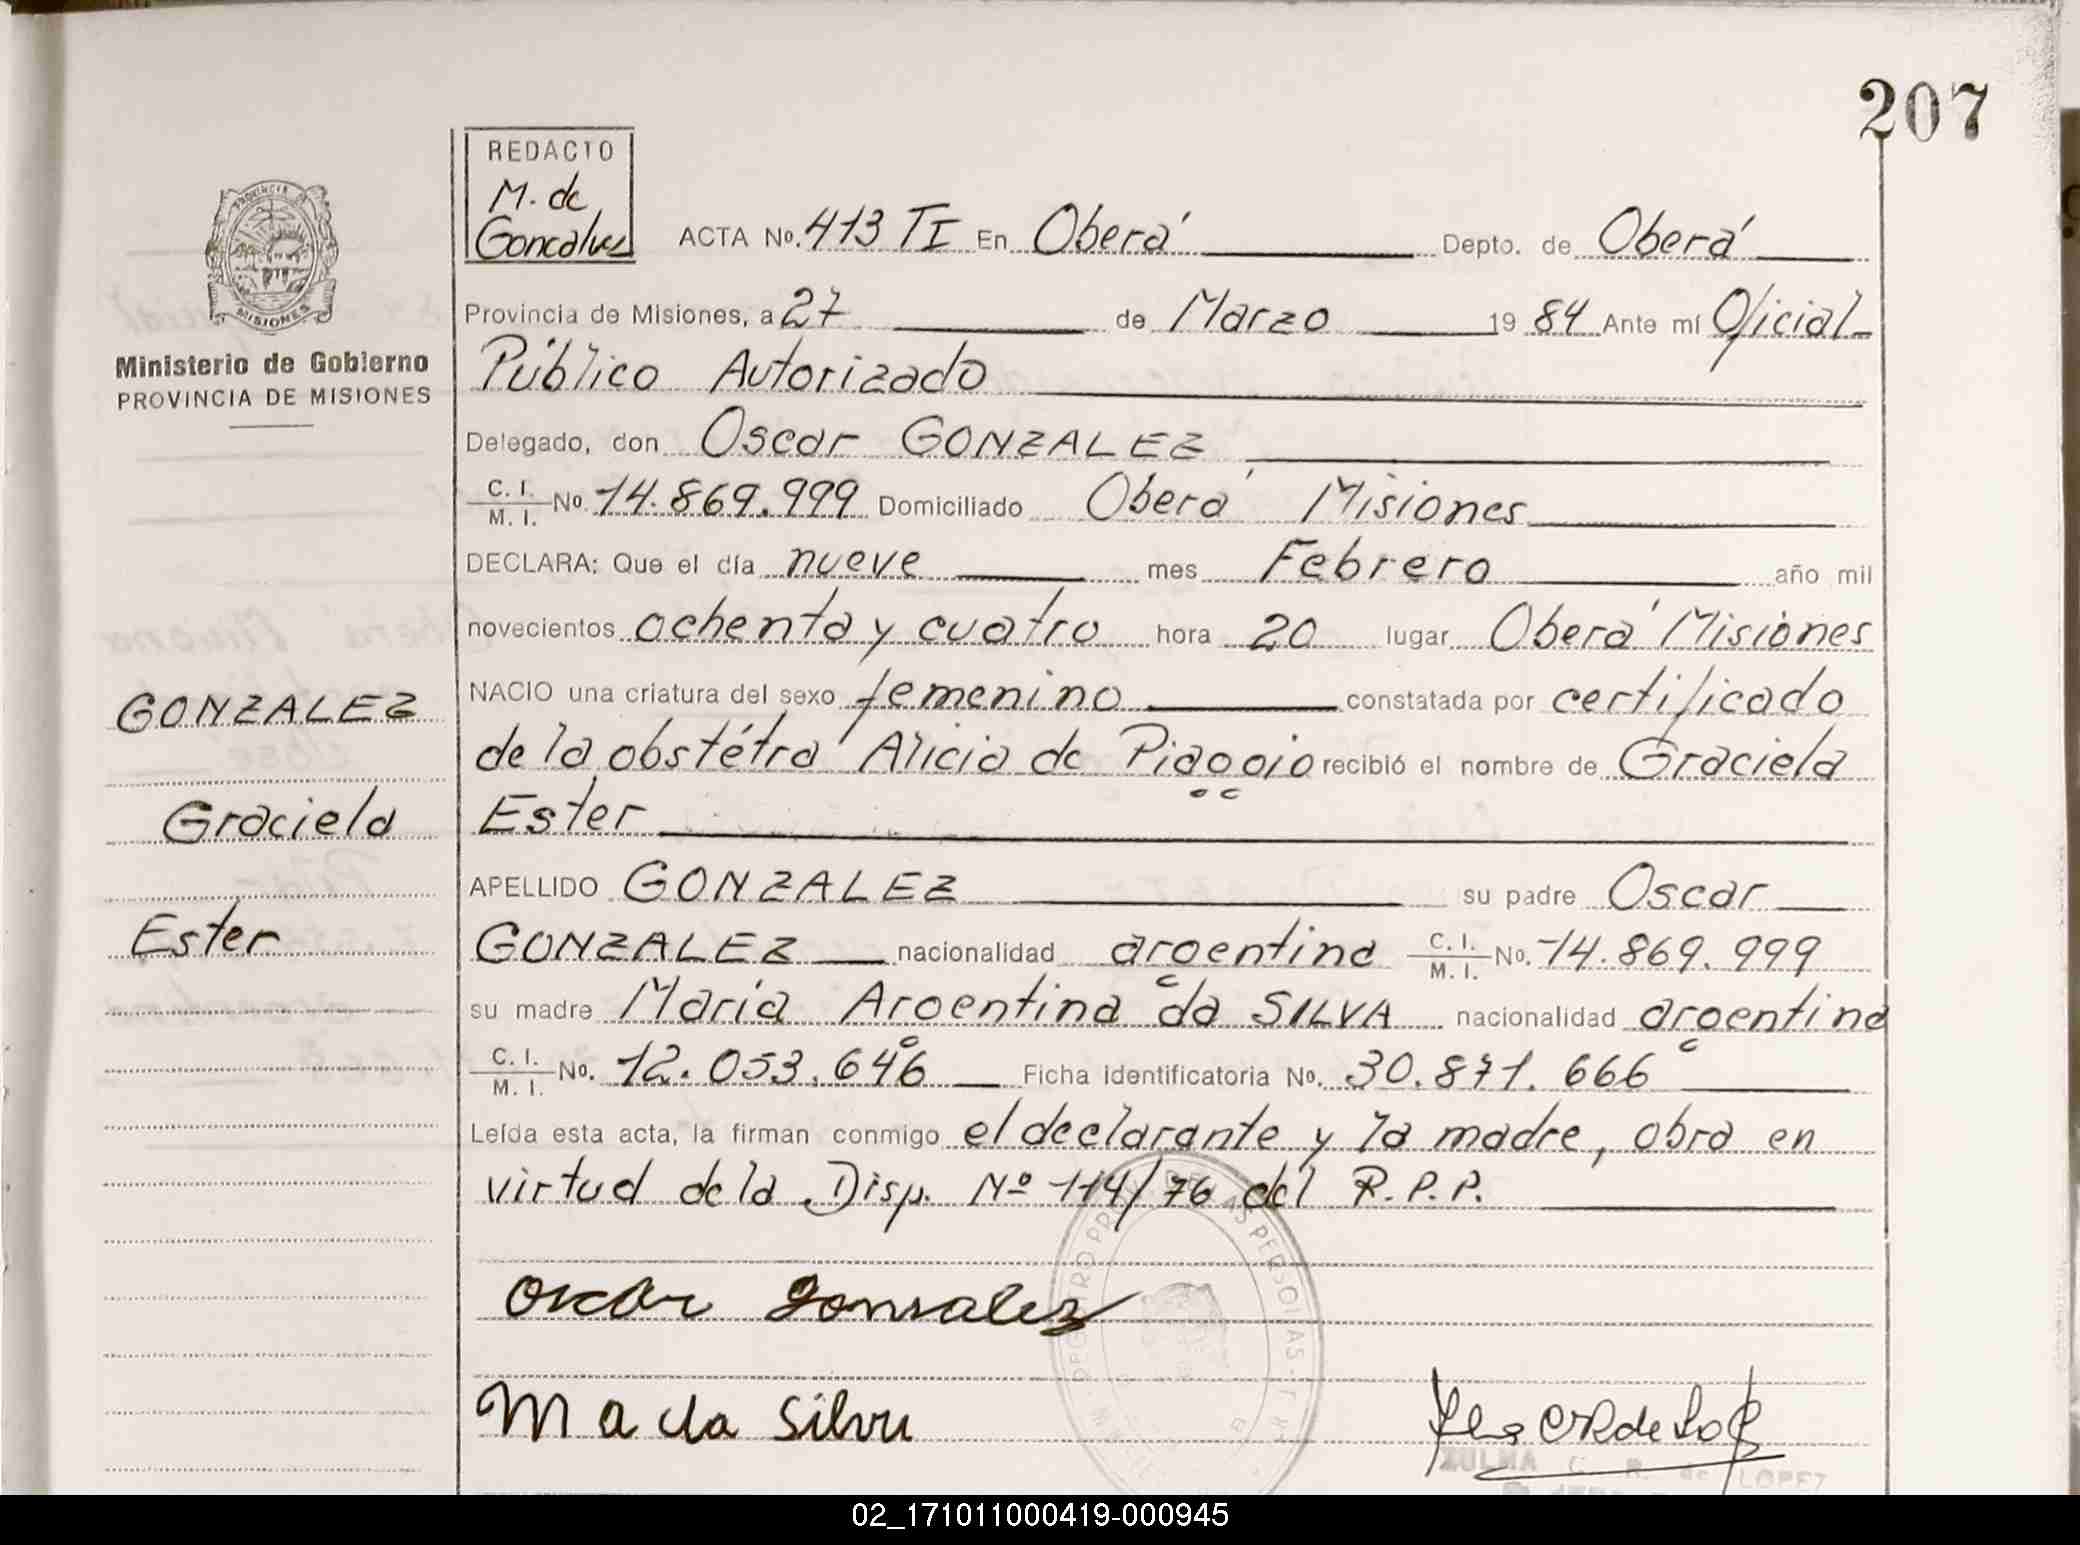 207
REDACTO
M. de
Goncalves
PROVINCIA
MISIONES
Ministerio de Gobierno
PROVINCIA DE MISIONES
ACTA No. 413 TI En Oberá Depto. de Oberá
Provincia de Misiones, a 27 de Marzo 19 84 Ante mí Oficial
Público Autorizado
Delegado, don Oscar GONZALEZ
C. I. / M. I. No. 14.869.999 Domiciliado Oberá Misiones
DECLARA: Que el día nueve mes Febrero año mil
novecientos ochenta y cuatro hora 20 lugar Oberá Misiones
NACIO una criatura del sexo femenino constatada por certificado
de la obstétra Alicia de Piaggio recibió el nombre de Graciela
Ester
APELLIDO GONZALEZ su padre Oscar
GONZALEZ nacionalidad argentina C. I. / M. I. No. 14.869.999
su madre Maria Argentina da SILVA nacionalidad argentina
C. I. / M. I. No. 12.053.646 Ficha identificatoria No. 30.871.666
Leída esta acta, la firman conmigo el declarante y la madre, obra en
virtud de la Disp. Nº 114/76 del R.P.P.
GONZALEZ
Graciela
Ester
Oscar Gonsalez
M a da Silva
ZULMA C. R. de LOPEZ
02_171011000419-000945